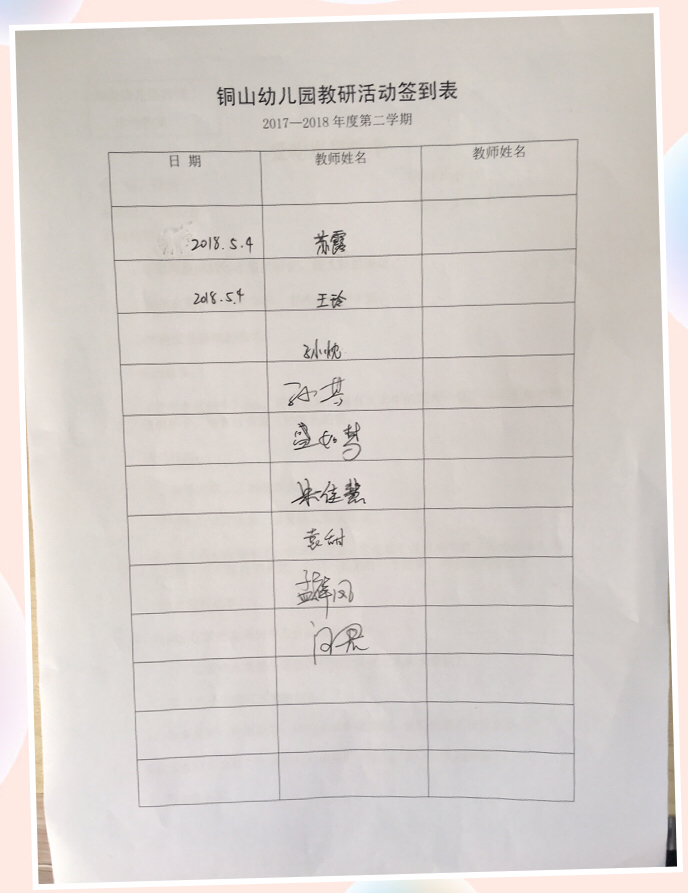 铜山幼儿园教研活动签到表
2017—2018 年度第二学期
日 期 教师姓名 教师姓名
2018.5.4 苏露
2018.5.4 王玲
孙忱
孙其
盛如梦
朱佳慧
袁甜
孟翠凤